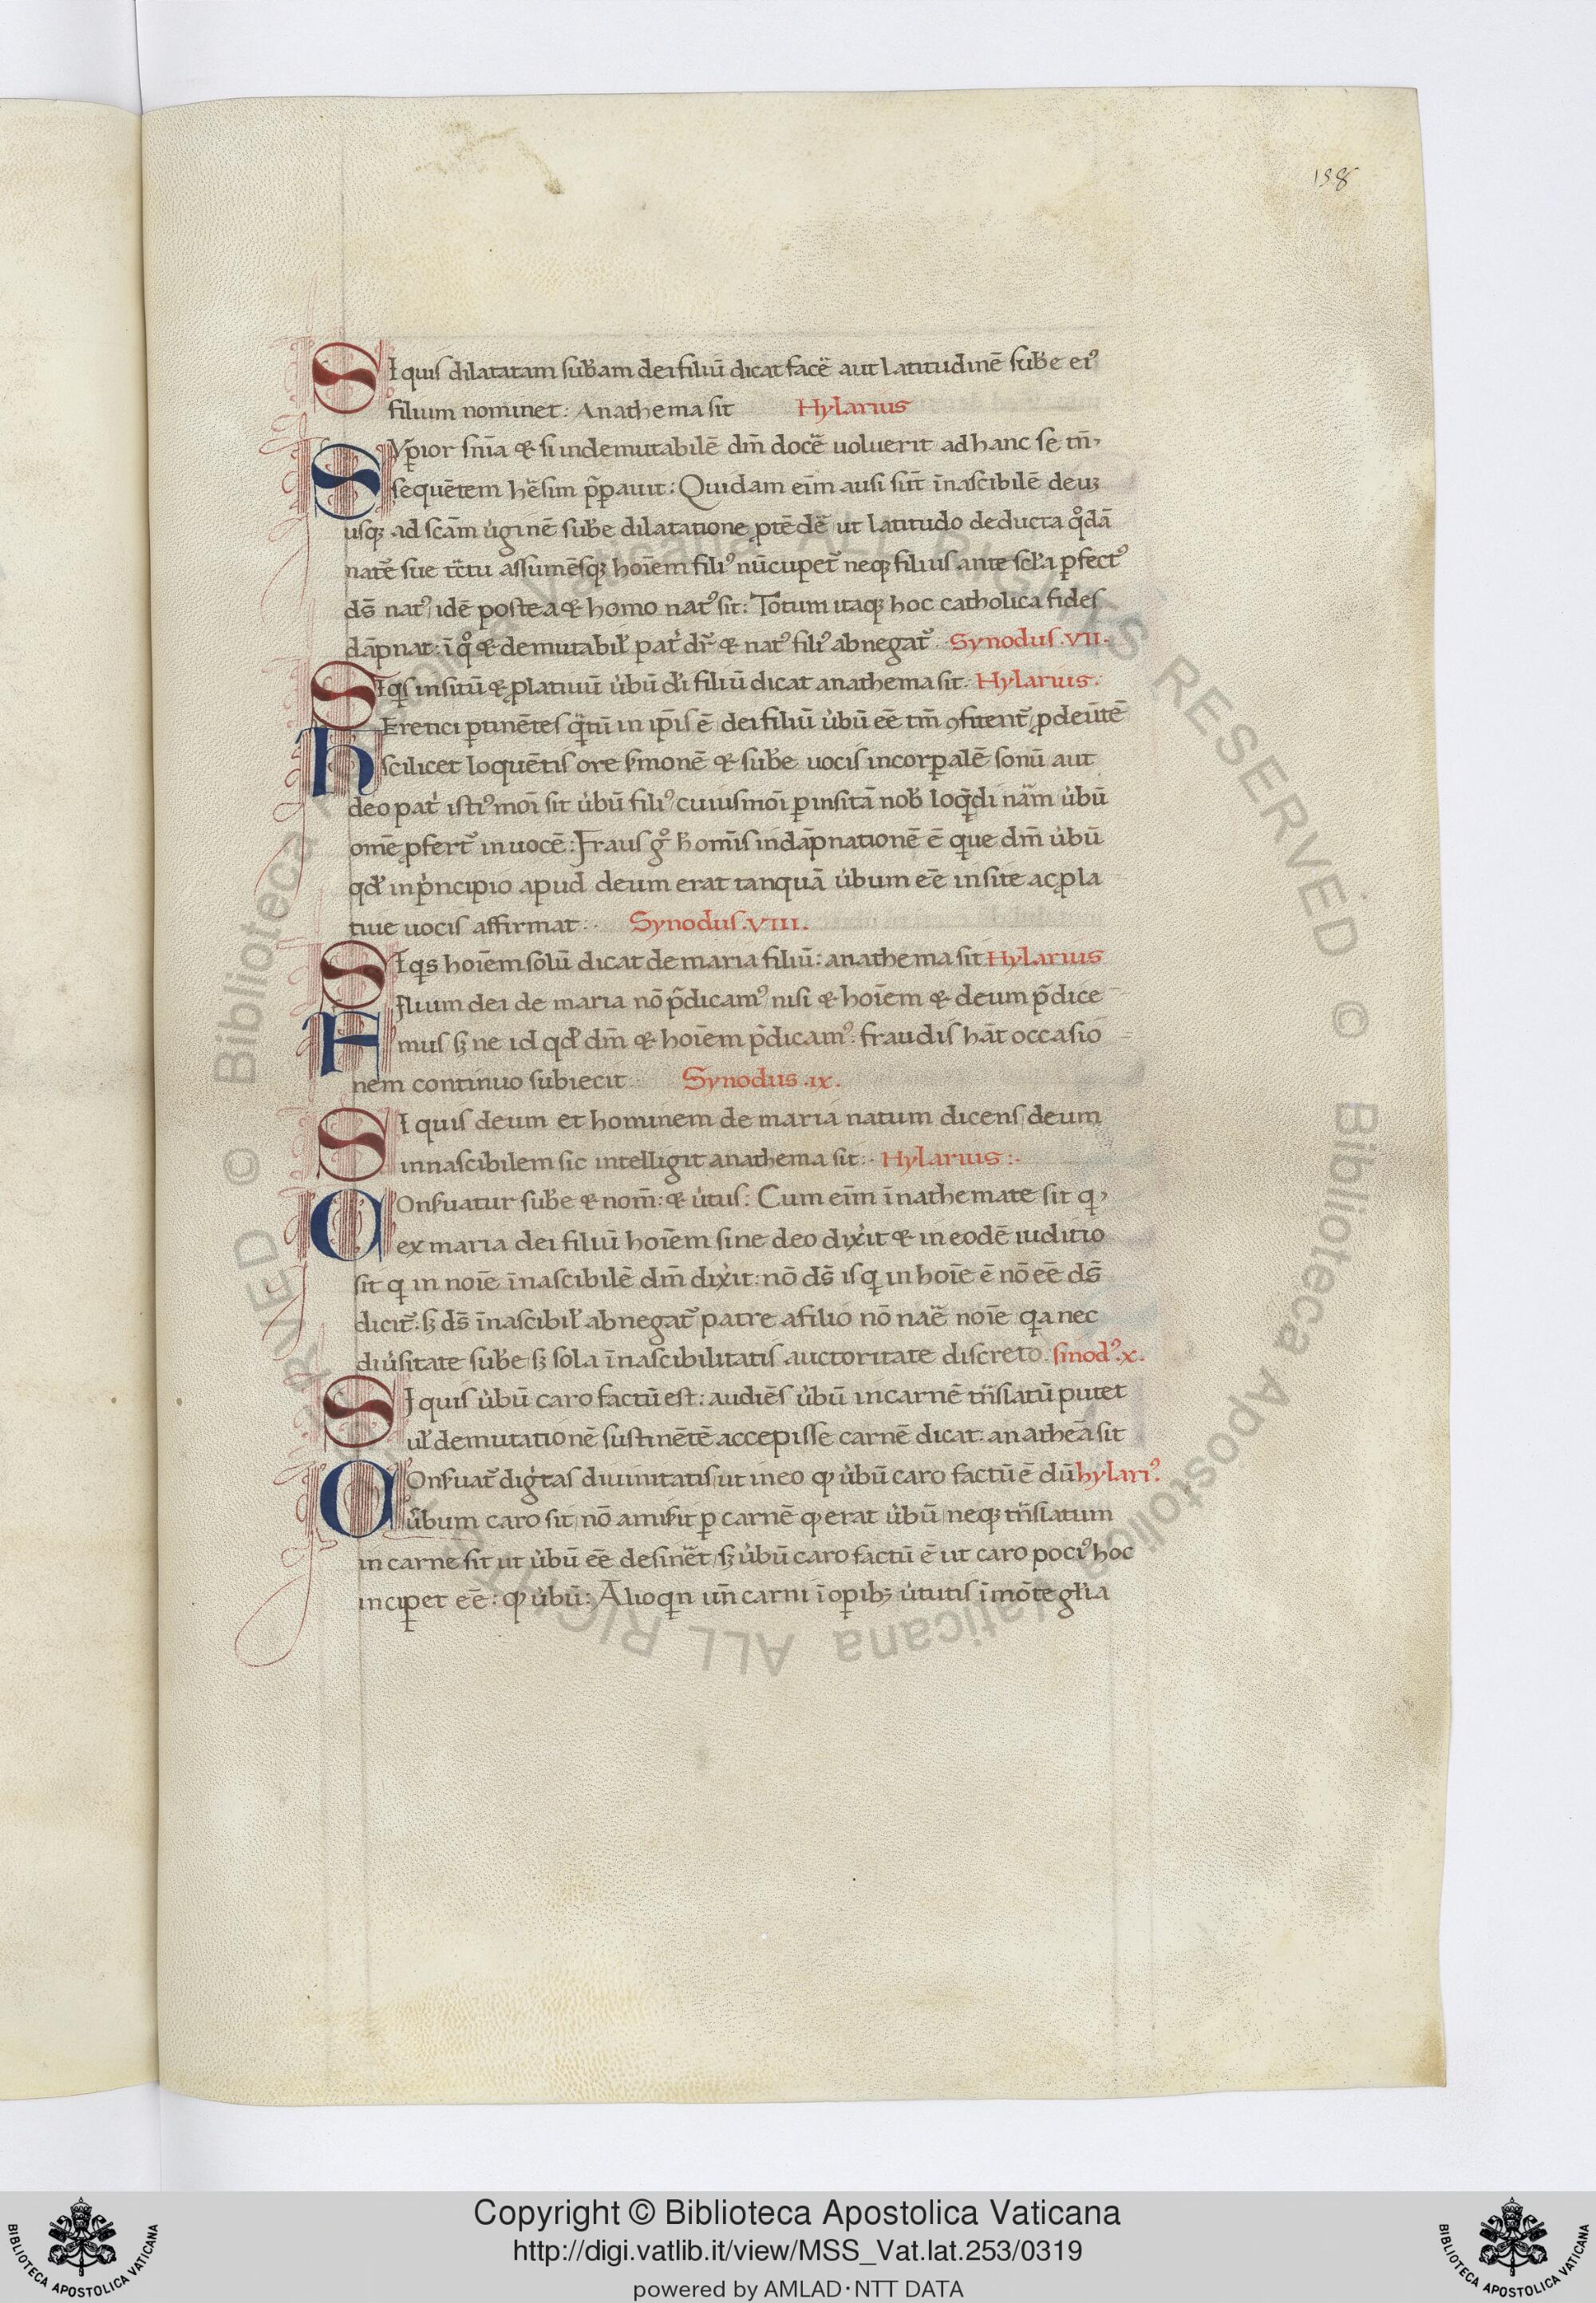 198
SI quis dilatatam subam dei filiū dicat facē aut latitudinē sube ei⁹
filium nominet: Anathema sit Hylarius
SVp̱ior sn̄ia & si indemutabilē dm̄ docē uoluerit ad hanc se tn̄
sequētem hēsim p̄pauit: Quidam eim̄ ausi sūt īnascibilē deuʒ
usqʒ ad scām ugīnē sube dilatatione ꝓtēdē ut latitudo deducta qᵒdā
natē sue tctu assumēsqʒ hoīem fili⁹ nūcupet᷑ neqʒ filius ante scła ꝑfect⁹
ds̄ nat⁹ idē postea & homo nat⁹ sit: Totum itaqʒ hoc catholica fides
dāpnat: ī qᵒ & demutabil' pat' dr̄ & nat⁹ fili⁹ abnegat᷑. Synodus .VII.
SIqs insitū & ꝓlatiuū ubū di filiū dicat anathema sit. Hylarius.
hEretici ꝑtinētes qtū in ip̄is ē dei filiū ubū eē tm̄ ꝯfitent᷑ ꝓdeūtē
scilicet loquētis ore sꝰmonē & sube uocis incorꝑalē sonū aut
deo pat' isti⁹moī sit ubū fili⁹ cuiusmoī ꝑ insitā nob loqdi nām ubū
om̄e ꝓfert᷑ in uocē: Fraus gᵒ hom̄is in dāpnationē ē que dm̄ ubū
qd' in pncipio apud deum erat tanquā ubum eē insite ac ꝓla
tiue uocis affirmat: Synodus .VIII.
SIqs hoīem solū dicat de maria filiū: anathema sit Hylarius
Filium dei de maria nō p̄dicam⁹ nisi & hoīem & deum p̄dice
mus sʒ ne id qd' dm̄ & hoīem p̄dicam⁹: fraudis hāt occasio
nem continuo subiecit Synodus .ix.
SI quis deum et hominem de maria natum dicens deum
innascibilem sic intelligit anathema sit: Hylarius:
COnsꝰuatur sube & nom̄: & utus: Cum eim̄ īnathemate sit q
ex maria dei filiū hoīem sine deo dixit & in eodē iuditio
sit q in noīe īnascibilē dm̄ dixit: nō ds̄ is q in hoīe ē nō eē ds̄
dicit᷑: sʒ ds̄ īnascibil' abnegat᷑ patre a filio nō naē noīe qa nec
diusitate sube sʒ sola īnascibilitatis auctoritate discreto. sinod⁹.x.
SI quis ubū caro factū est: audiēs ubū in carnē tn̄slatū putet
ul' demutationē sustinētē accepisse carnē dicat: anatheā sit
COnsꝰuat᷑ digtas diuinitatis ut in eo ꝙ ubū caro factū ē dū hylari⁹.
ubum caro sit nō amisit ꝑ carnē ꝙ erat ubū neqʒ tn̄slatum
in carne sit ut ubū eē desinēt sʒ ubū caro factū ē ut caro poci⁹ hoc
inciꝑet eē: ꝙ ubū: Alioqn un̄ carni ī oꝑibʒ ututis ī mōte głia
Copyright © Biblioteca Apostolica Vaticana
http://digi.vatlib.it/view/MSS_Vat.lat.253/0319
powered by AMLAD·NTT DATA